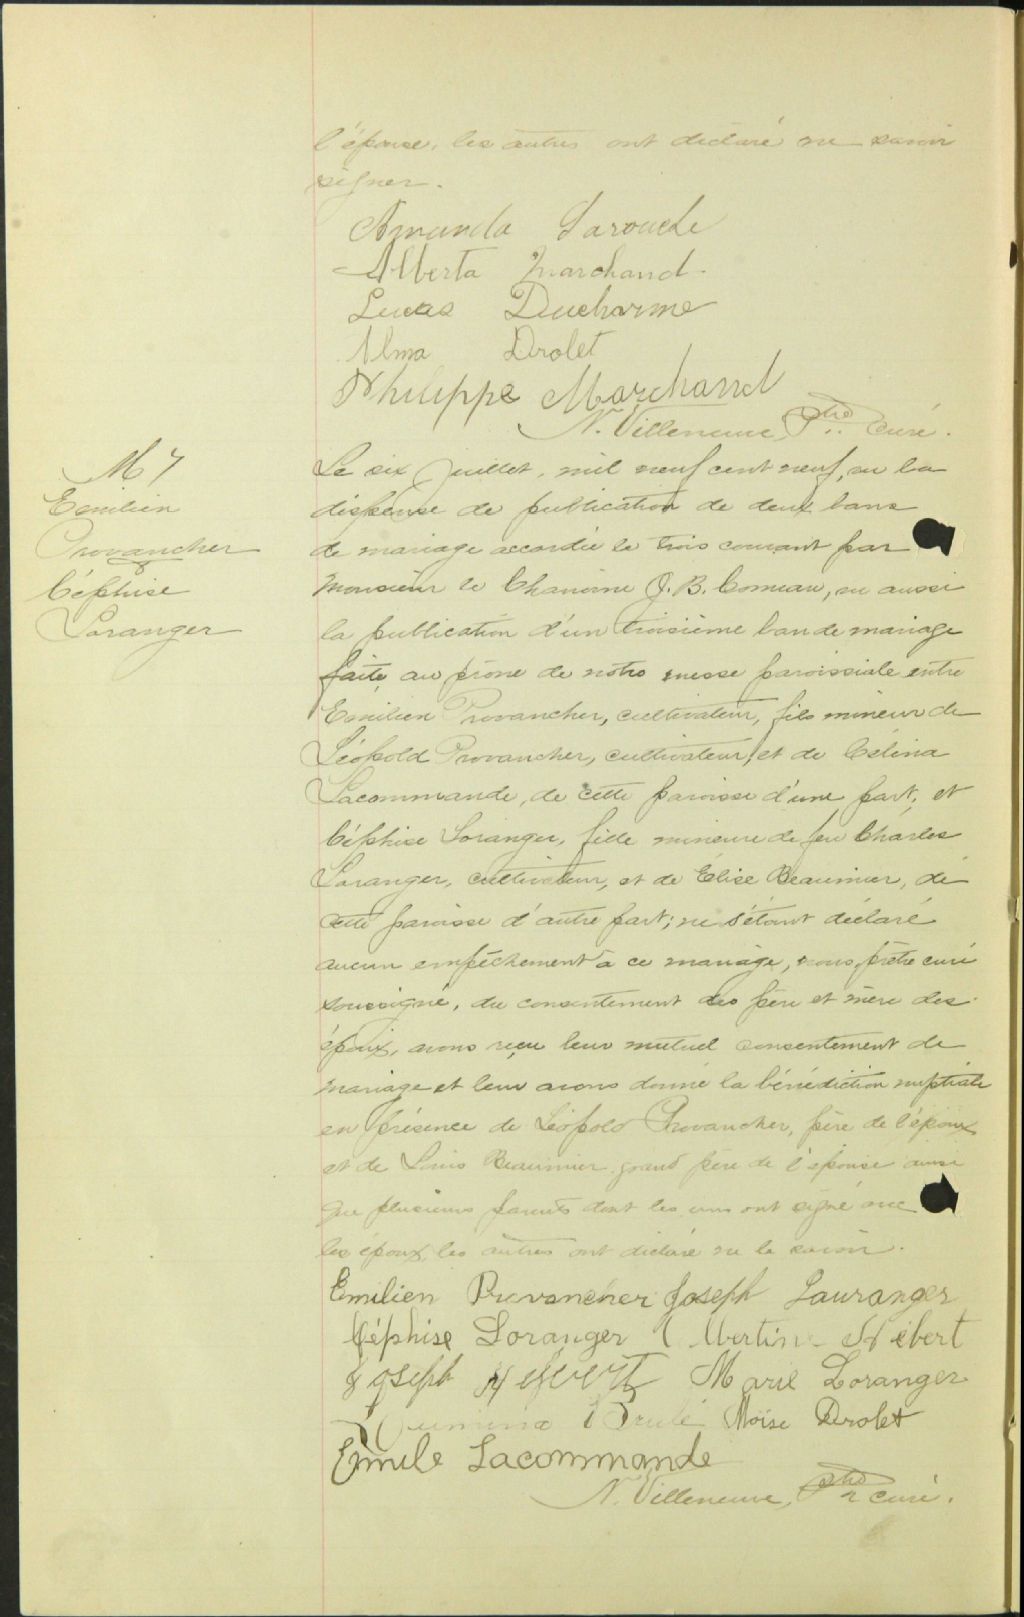 l'épouse, les autres ont déclaré ne savoir
signer.
Amanda Larouche
Alberta Marchand
Lucas Ducharme
Alma Drolet
Philippe Marchand
N. Villeneuve, Ptre curé.
M 7
Emilien
Provancher
&
Céphise
Loranger
Le six Juillet, mil neuf cent neuf, vu la
dispense de publication de deux bans
de mariage accordée le trois courant par
Monsieur le Chanoine J. B. Comeau, vu aussi
la publication d'un troisième ban de mariage
faite au prône de notre messe paroissiale entre
Emilien Provancher, cultivateur, fils mineur de
Léopold Provancher, cultivateur, et de Célina
Lacommande, de cette paroisse d'une part, et
Céphise Loranger, fille mineure de feu Charles
Loranger, cultivateur, et de Élise Beaumier, de
cette paroisse d'autre part; ne s'étant déclaré
aucun empêchement à ce mariage, nous, prêtre curé
soussigné, du consentement des père et mère des
époux, avons reçu leur mutuel consentement de
mariage et leur avons donné la bénédiction nuptiale
en présence de Léopold Provancher, père de l'époux
et de Louis Beaumier grand père de l'épouse ainsi
que plusieurs parents dont les uns ont signé avec
les époux, les autres ont déclaré ne le savoir.
Emilien Provancher Joseph Lauranger
Céphise Loranger Albertine Hébert
Joseph Marie Loranger
Brulé Moïse Drolet
Emile Lacommande
N. Villeneuve, Ptre curé.